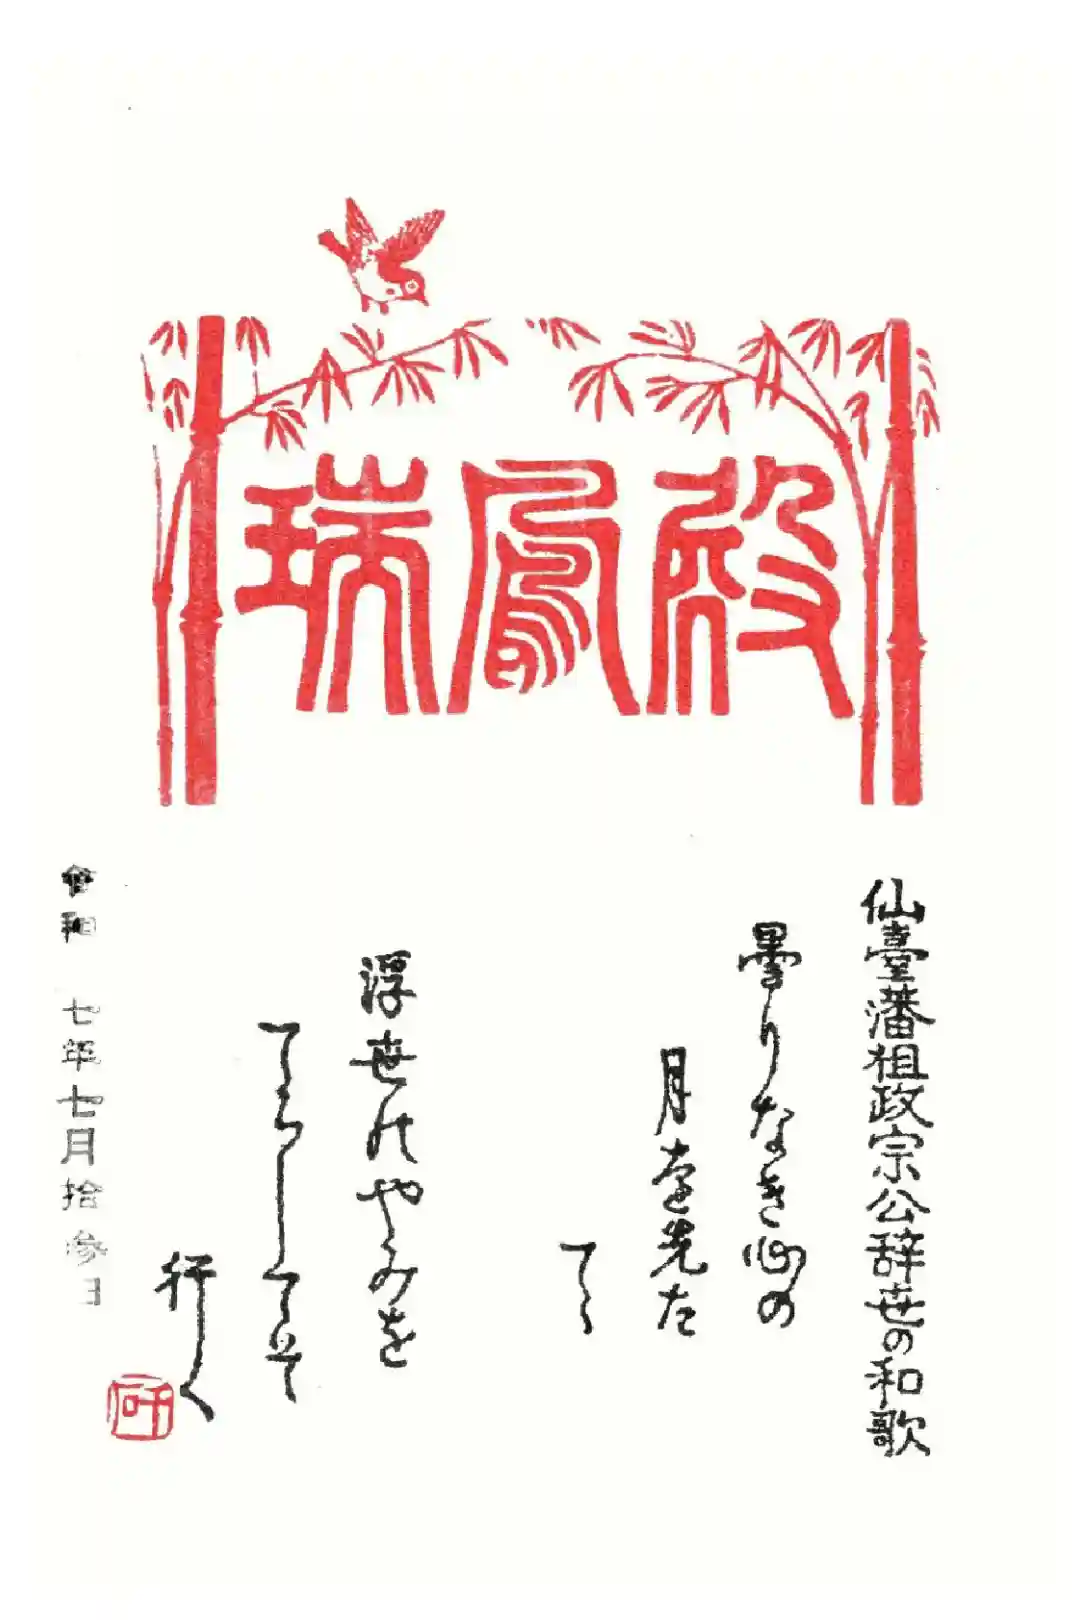 瑞鳳殿
仙臺藩祖政宗公辞世の和歌
曇りなき心の
月を先た
てゝ
浮世のやみを
てらしてそ
行く
令和 七年七月拾参日